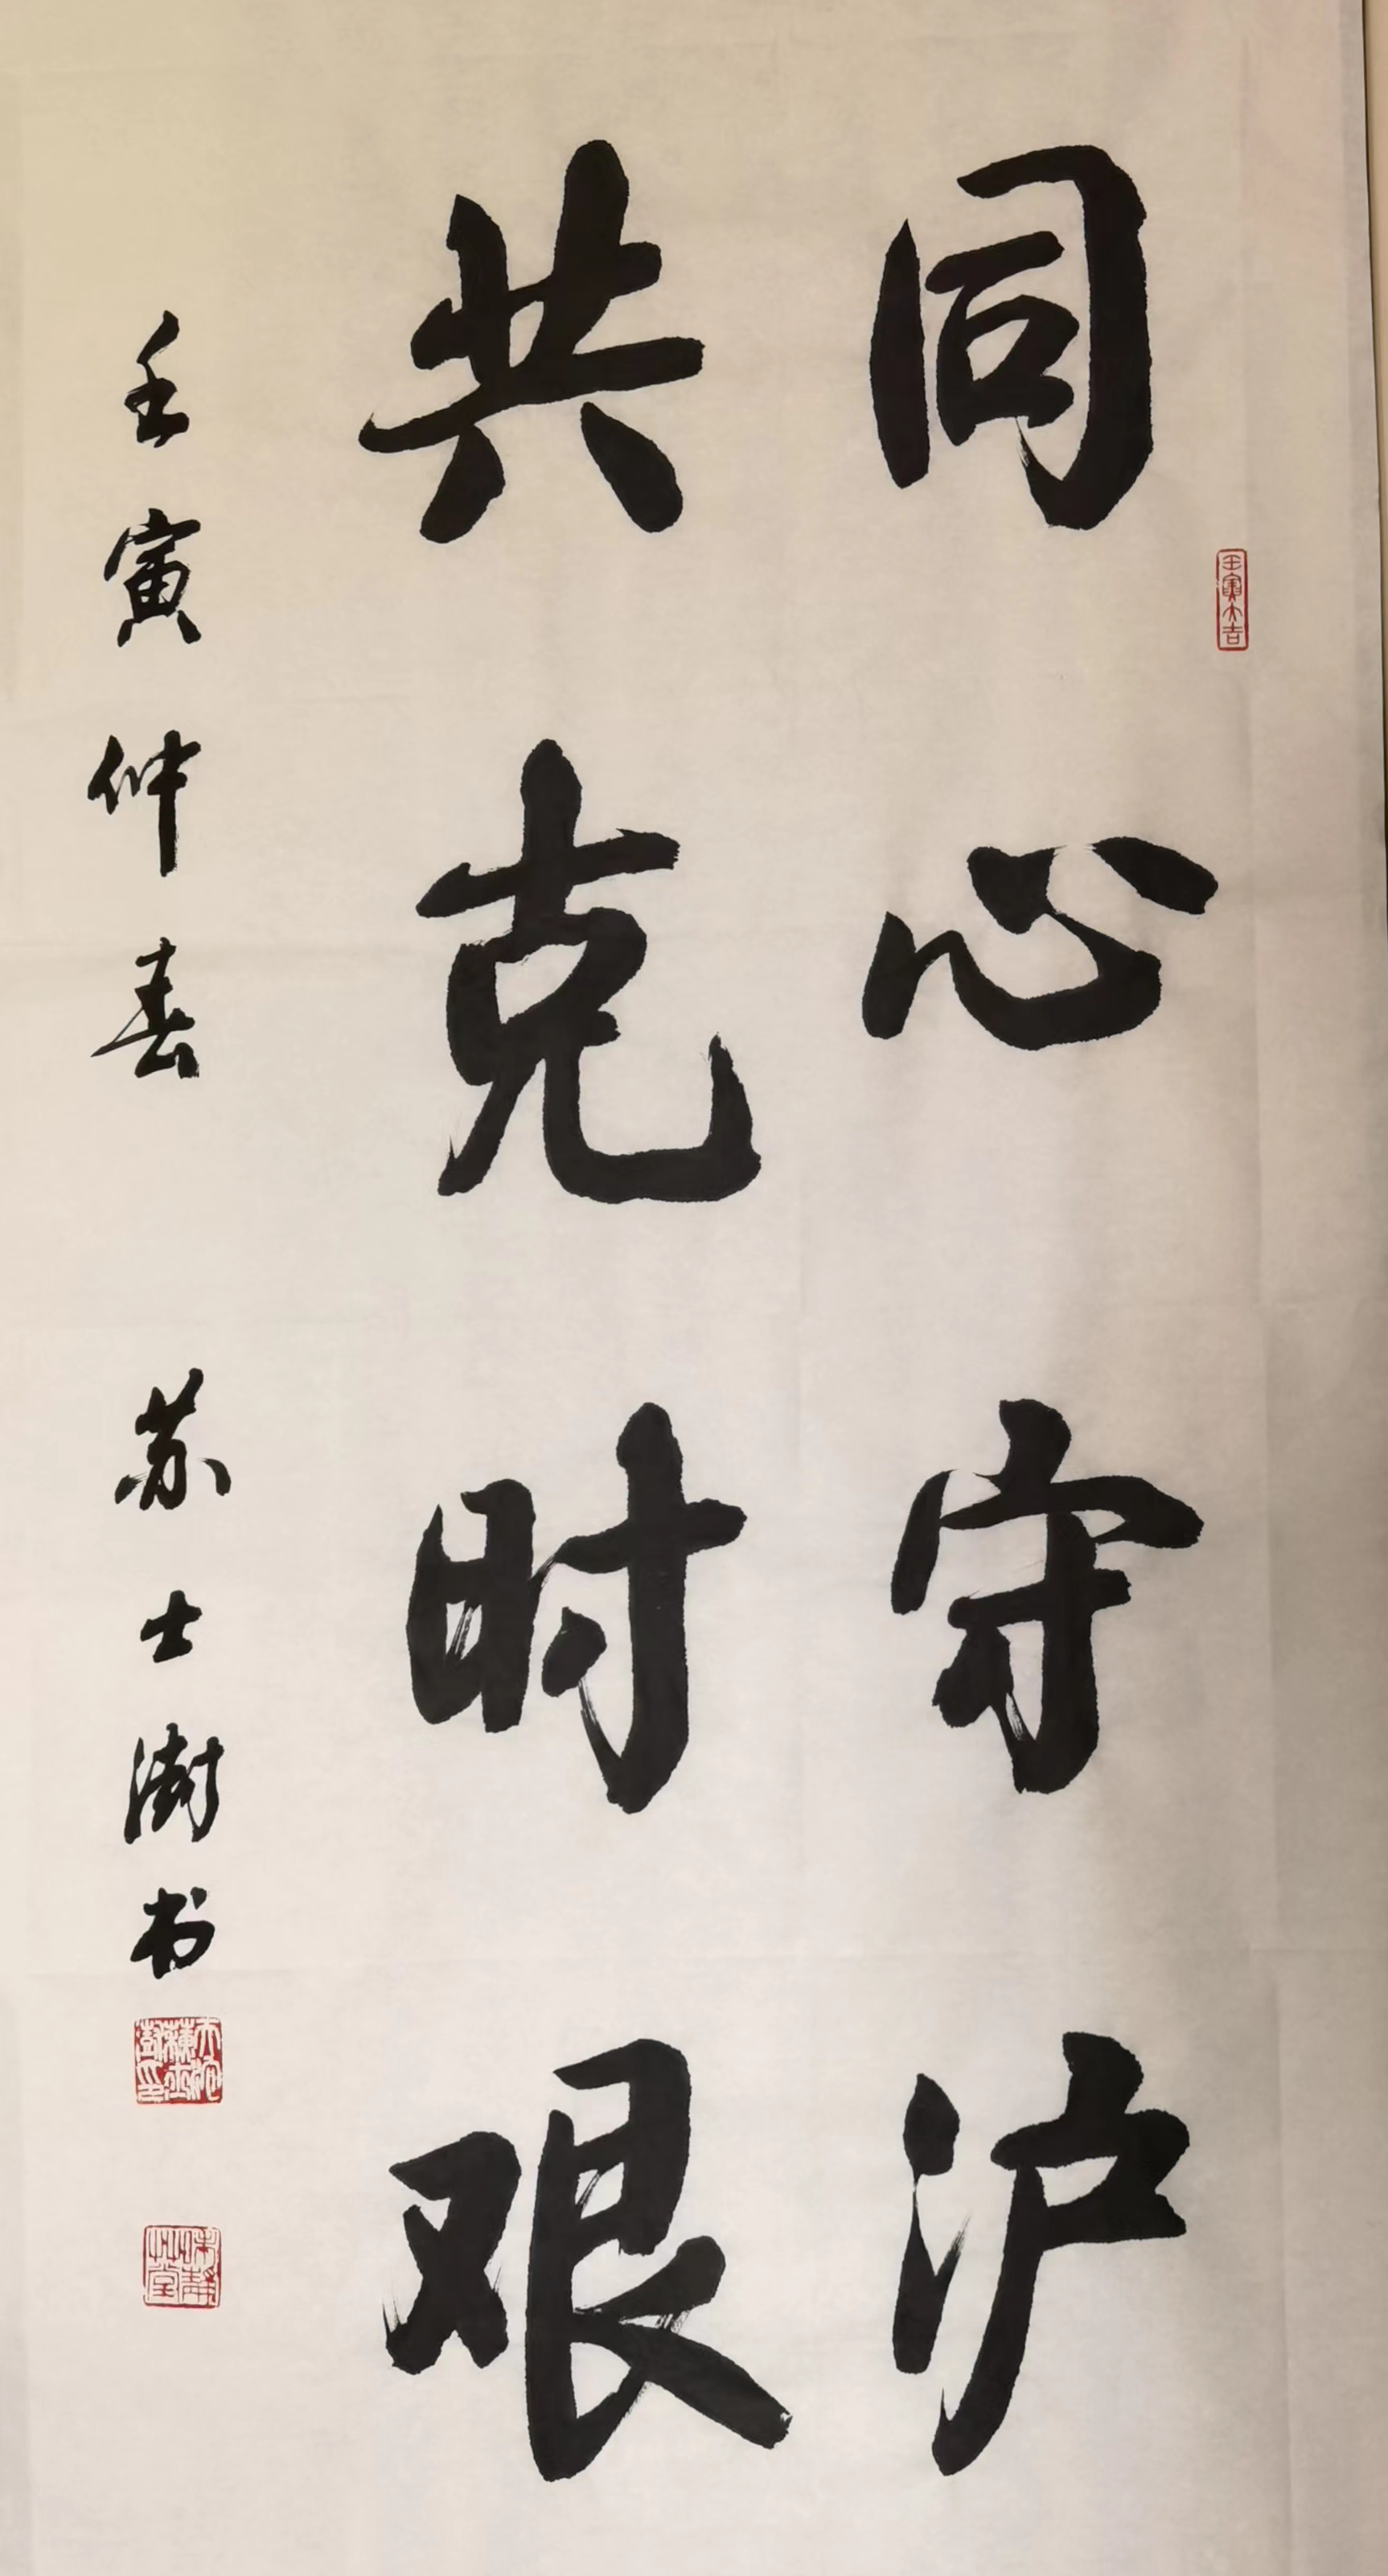 同心守沪
共克时艰
壬寅仲春 苏士澍书
壬寅大吉